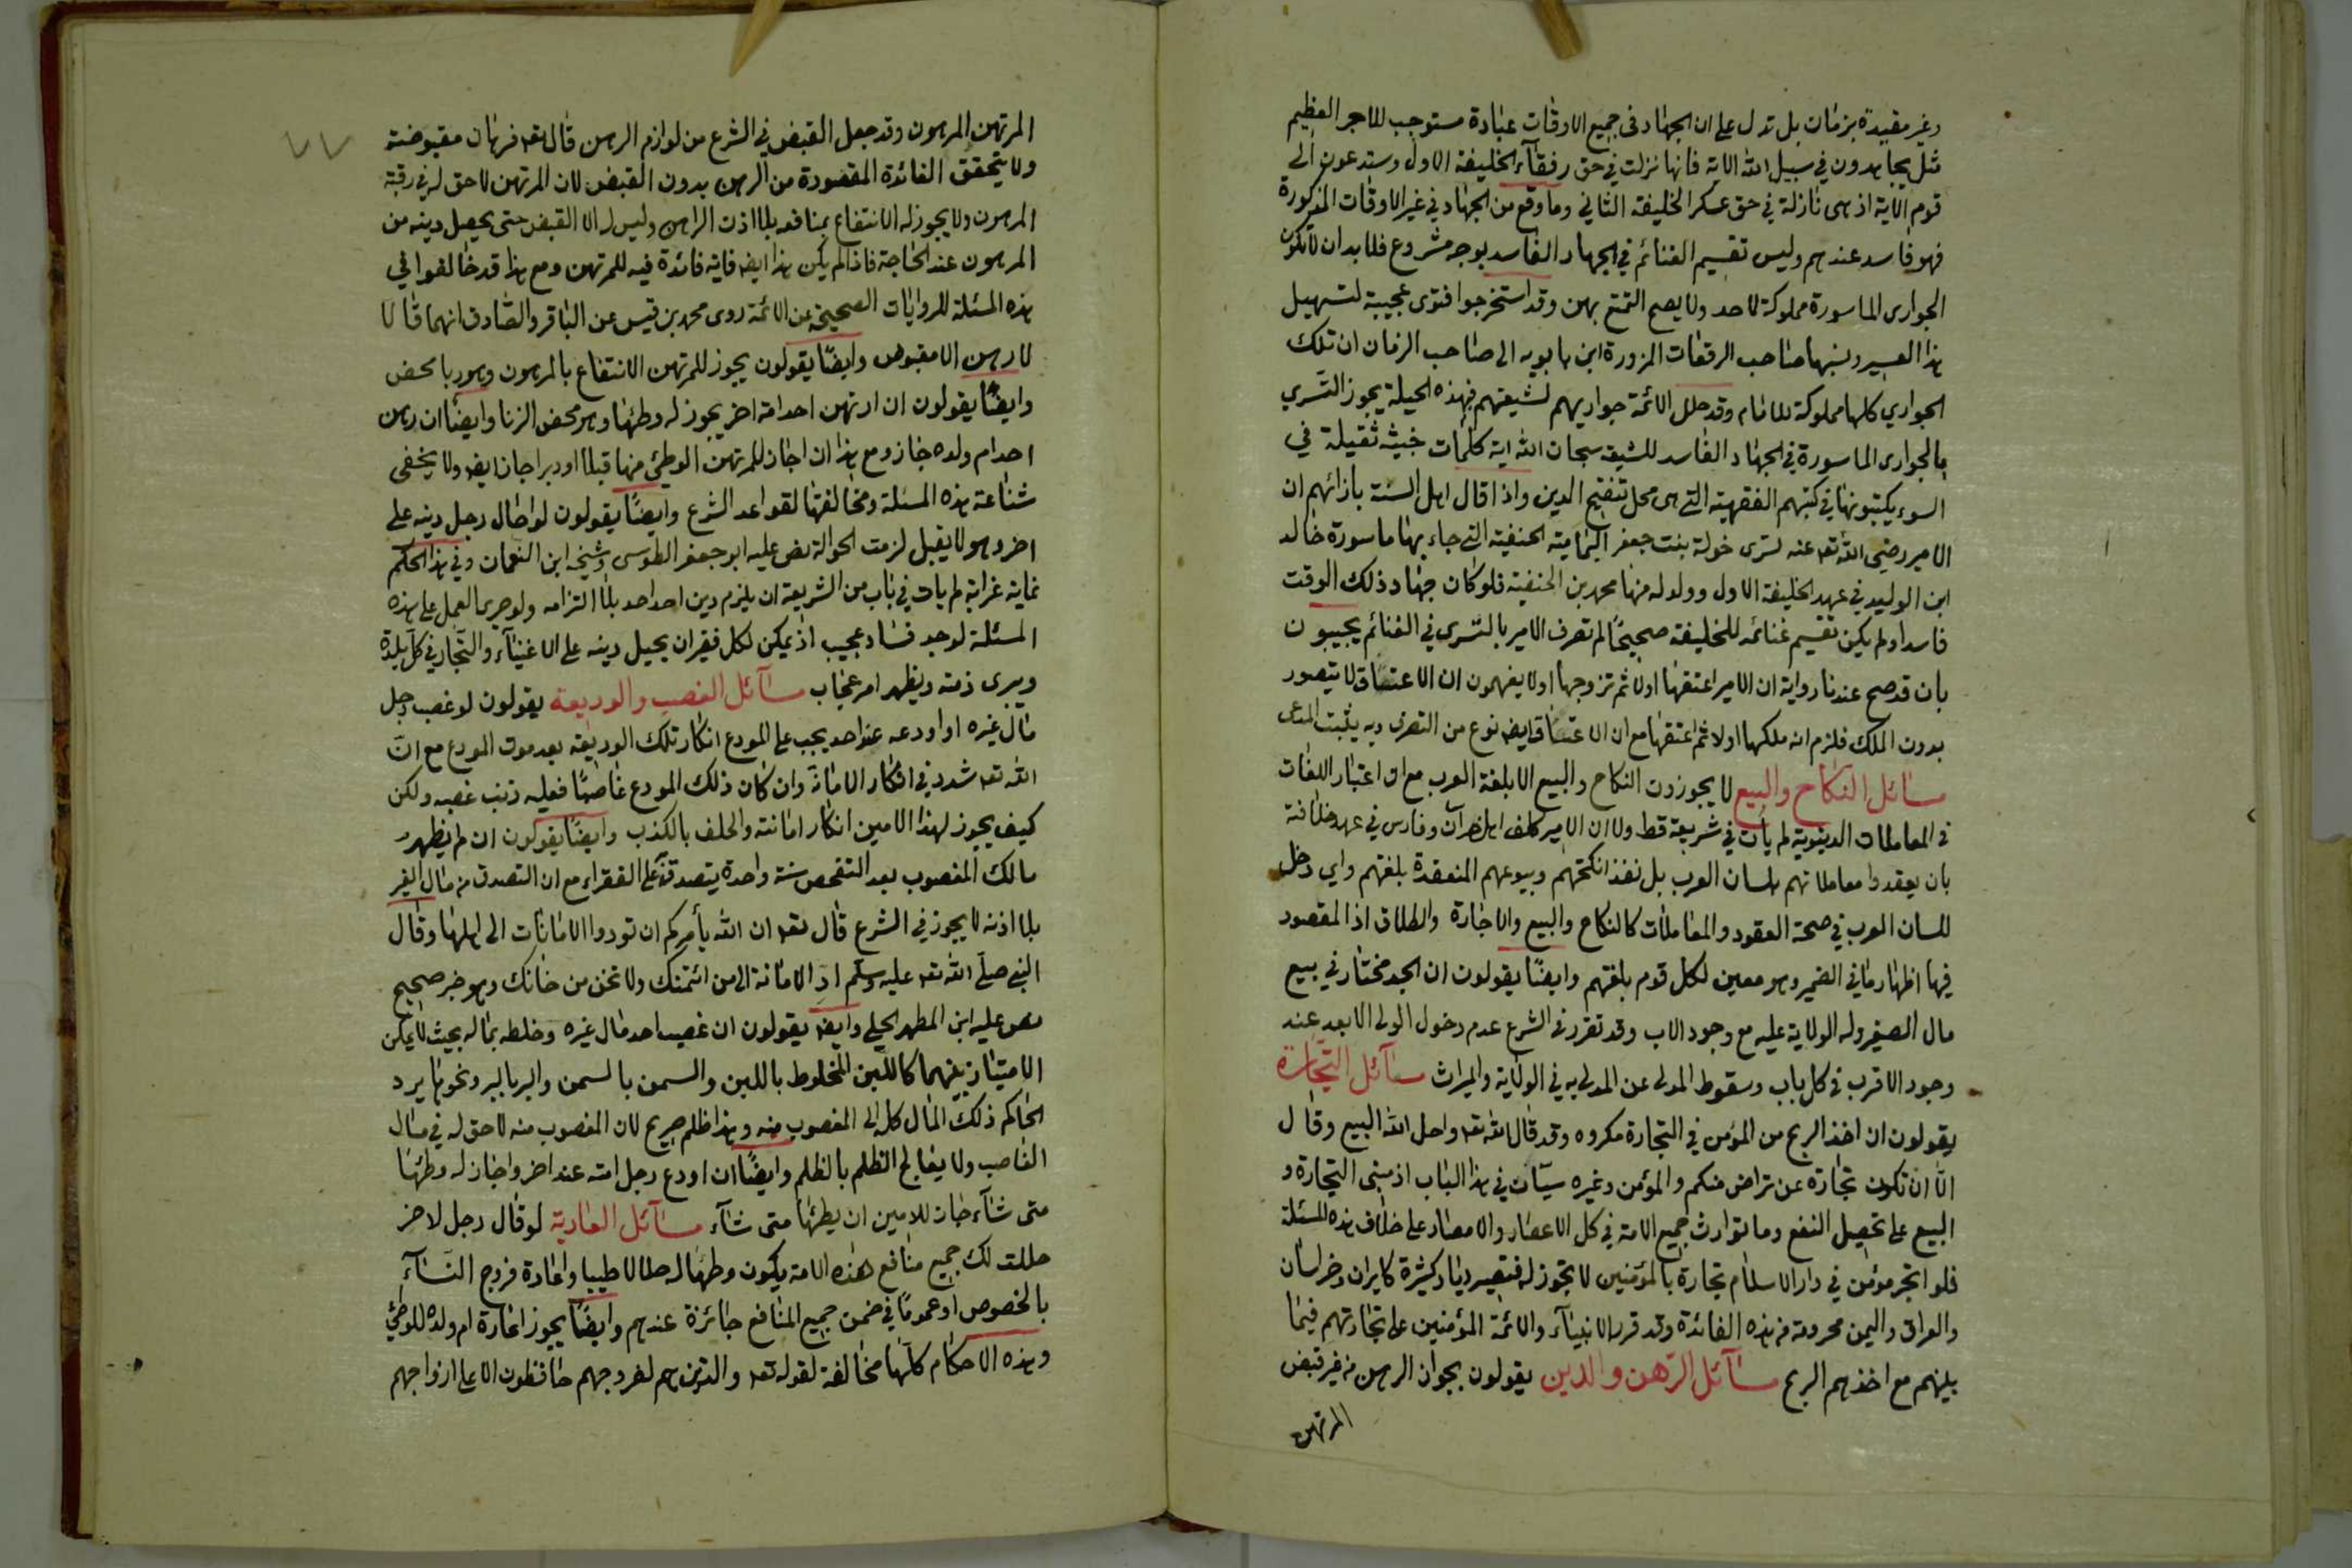 وغير مقيدة بزمان بل تدل على ان الجهاد فى جميع الاوقات عبادة مستوجب للاجر العظيم
مثل يجاهدون في سبيل الله الاية فانها نزلت في حق رفقآء الخليفة الاول وستدعون الى
قوم الاية اذ هى نازلة في حق عسكر الخليفة الثاني وما وقع من الجهاد في غير الاوقات المذكورة
فهو فاسد عندهم وليس تقسيم الغنائم في الجهاد الفاسد بوجه مشروع فلا بد ان لا تكون
الجوارى الماسورة مملوكة لاحد ولا يصح التمتع بهن وقد استخرجوا فتوى عجيبة لتسهيل
هذا العسير ونسبها صاحب الرقعات المزورة ابن بابويه الى صاحب الزمان ان تلك
الجواري كلها مملوكة للامام وقد حلل الائمة جواريهم لشيعتهم فبهذه الحيلة يجوز التسري
بالجوارى الماسورة في الجهاد الفاسد للشيعة سبحان الله اية كلمات خبيثة ثقيلة في
السوء يكتبونها في كتبهم الفقهية التي هى محل تنقيح الدين واذا قال اهل السنة بازائهم ان
الامير رضي الله تعه عنه تسرى خولة بنت جعفر اليمامية الحنفية التي جاء بها ماسورة خالد
ابن الوليد في عهد الخليفة الاول وولد له منها محمد بن الحنفية فلو كان جهاد ذلك الوقت
فاسدا ولم يكن تقسيم غنائمه للخليفة صحيحًا لم تصرف الامير بالتسرى في الغنائم يجيبون
بان قد صح عندنا رواية ان الامير اعتقها اولا ثم تزوجها اولا يفهمون ان الاعتاق لا يتصور
بدون الملك فلزم انه ملكها اولا ثم اعتقها مع ان الاعتاق ايضا نوع من التصرف وبه يثبت المدعى
مسائل النكاح والبيع لا يجوزون النكاح والبيع الا بلغة العرب مع ان اعتبار اللغات
فى المعاملات الدنيوية لم يأت في شريعة قط ولا ان الامير كلف اهل خراسان وفارس في عهد خلافته
بان يعقدوا معاملاتهم بلسان العرب بل نفذ انكحتهم وبيوعهم المنعقدة بلغتهم واي دخل
للسان العرب في صحة العقود والمعاملات كالنكاح والبيع والاجارة والطلاق اذ المقصود
فيها اظهار ما في الضمير وهو معين لكل قوم بلغتهم وايضًا يقولون ان الجد مختار في بيع
مال الصغير وله الولاية عليه مع وجود الاب وقد تقرر فى الشرع عدم دخول الولى الابعد عند
وجود الاقرب فى كل باب وسقوط المدلى عن المدلى به في الولاية والميراث مسآئل التجارة
يقولون ان اخذ الربح من المؤمن في التجارة مكروه وقد قال الله تعه واحل الله البيع وقال
الّا ان تكون تجارة عن تراض منكم والمؤمن وغيره سيّان في هذا الباب اذ مبنى التجارة و
البيع على تحصيل النفع وما توارث جميع الامة في كل الاعصار والامصار على خلاف هذه المسئلة
فلو اتجر مؤمن في دار الاسلام تجارة بالمؤمنين لا تجوز له فتصير ديار كثيرة كايران وخراسان
والعراق واليمن محرومة من هذه الفائدة وقد قرر الانبيآء والائمة المؤمنين على تجارتهم فيما
بينهم مع اخذهم الربح مسآئل الرّهن والدين يقولون بجواز الرهن من غير قبض
المرتهن
المرتهن المرهون وقد جعل القبض في الشرع من لوازم الرهن قال تعه فرهان مقبوضة
ولا يتحقق الفائدة المقصودة من الرهن بدون القبض لان المرتهن لا حق له في رقبة
المرهون ولا يجوز له الانتفاع بمنافعه بلا اذن الراهن وليس له الا القبض حتى يحصل دينه من
المرهون عند الحاجة فاذا لم يكن هذا ايضه فاية فائدة فيه للمرتهن ومع هذا قد خالفوا في
هذه المسئلة للروايات الصحيحة عن الائمة روى محمد بن قيس عن الباقر والصّادق انهما قالا
لا رهن الا مقبوض وايضًا يقولون يجوز للمرتهن الانتفاع بالمرهون وهو ربا محض
وايضًا يقولون ان ارتهن احد امة اخر يجوز له وطئها وهو محض الزنا وايضًا ان رهن
احد ام ولده جاز ومع هذا ان اجاز للمرتهن الوطئ منها قبلا او دبرا جاز ايضه ولا يخفى
شناعة هذه المسئلة ومخالفتها لقواعد الشرع وايضًا يقولون لو احال رجل دينه على
اخر وهو لا يقبل لزمت الحوالة نص عليه ابو جعفر الطوسى وشيخه ابن النعمان وفي هذا الحكم
غاية غرابة لم يات في باب من الشريعة ان يلزم دين احد احد بلا التزامه ولو جرى العمل على هذه
المسئلة لوجد فساد عجيب اذ يمكن لكل فقير ان يحيل دينه على الاغنيآء والتجار في كل بلدة
ويبرى ذمته ويظهر امر عجاب مسآئل الغصب والوديعة يقولون لو غصب رجل
مال غيره او اودعه عند احد يجب على المودع انكار تلك الوديعة بعد موت المودع مع انّ
الله تعه شدد في انكار الامانة وان كان ذلك المودع غاصبًا فعليه ذنب غصبه ولكن
كيف يجوز لهذا الامين انكار امانته والحلف بالكذب وايضًا يقولون ان لم يظهر
مالك المغصوب بعد التفحص سنة واحدة يتصدق به على الفقراء مع ان التصدق من مال الغير
بلا اذنه لا يجوز في الشرع قال تعه ان الله يأمركم ان تودوا الامانات الى اهلها وقال
النبي صلّى الله تعه عليه وسلّم ادِ الامانة الى من ائتمنك ولا تخن من خانك وهو خبر صحيح
نص عليه ابن المطهر الحلي وايضه يقولون ان غصب احد مال غيره وخلطه بماله بحيث لا يمكن
الامتياز بينهما كاللبن المخلوط باللبن والسمن بالسمن والبر بالبر ونحوها يرد
الحاكم ذلك المال كله الى المغصوب منه وهذا ظلم صريح لان المغصوب منه لا حق له في مال
الغاصب ولا يعالج الظلم بالظلم وايضًا ان اودع رجل امته عند اخر واجاز له وطئها
متى شآء جاز للامين ان يطئها متى شآء مسآئل العارية لو قال رجل لاخر
حللت لك جميع منافع هذه الامة يكون وطئها له حلالا طيبا واعارة فروج النسآء
بالخصوص او عمومًا في ضمن جميع المنافع جائزة عندهم وايضًا يجوز اعارة ام ولده للوطئ
وهذه الاحكام كلّها مخالفة لقوله تعه والذين هم لفروجهم حافظون الا على ازواجهم